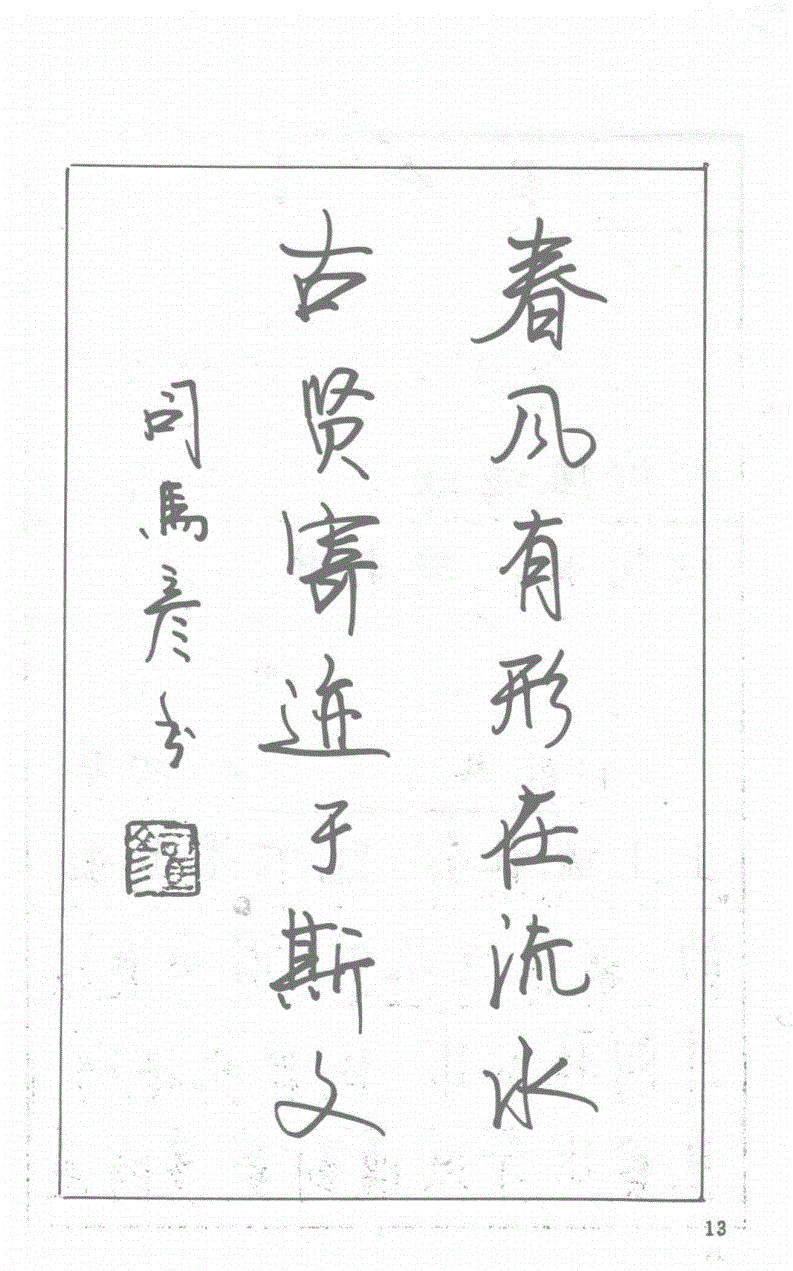 春风有形在流水
古贤寄迹于斯文
司馬彦书
13